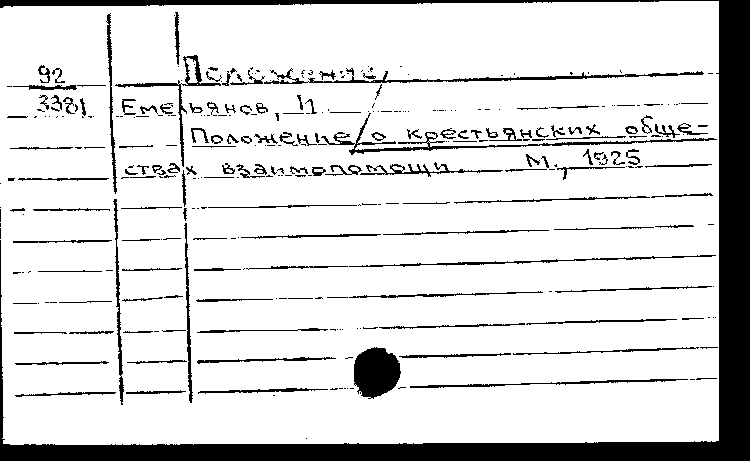 92 Положение
3381 Емельянов, И
Положение о крестьянских обще-
ствах взаимопомощи. М., 1925